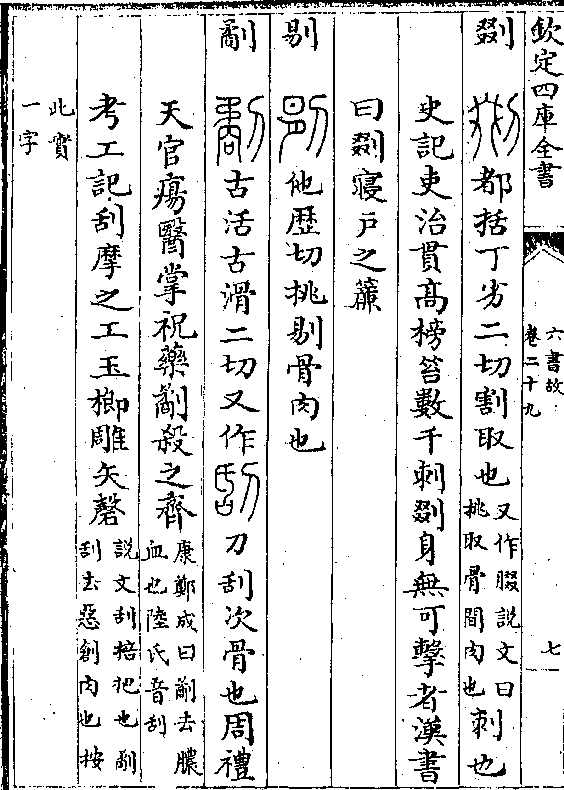 欽定四庫全書
六書故
卷二十九
七
剟 都括丁劣二切割取也
又作腏說文曰
挑取骨間肉也
刺也
史記吏治貫高榜笞數千刺剟身無可擊者漢書
曰剟寝戶之簾
剔 他歷切挑剔骨肉也
劀 古活古滑二切又作刮刀刮次骨也周禮
天官瘍醫掌祝藥劀殺之齊
康鄭成曰劀去膿
血也陸氏音刮
考工記刮摩之工玉楖雕矢磬
說文刮掊把也劀
刮去惡創肉也按
此實
一字